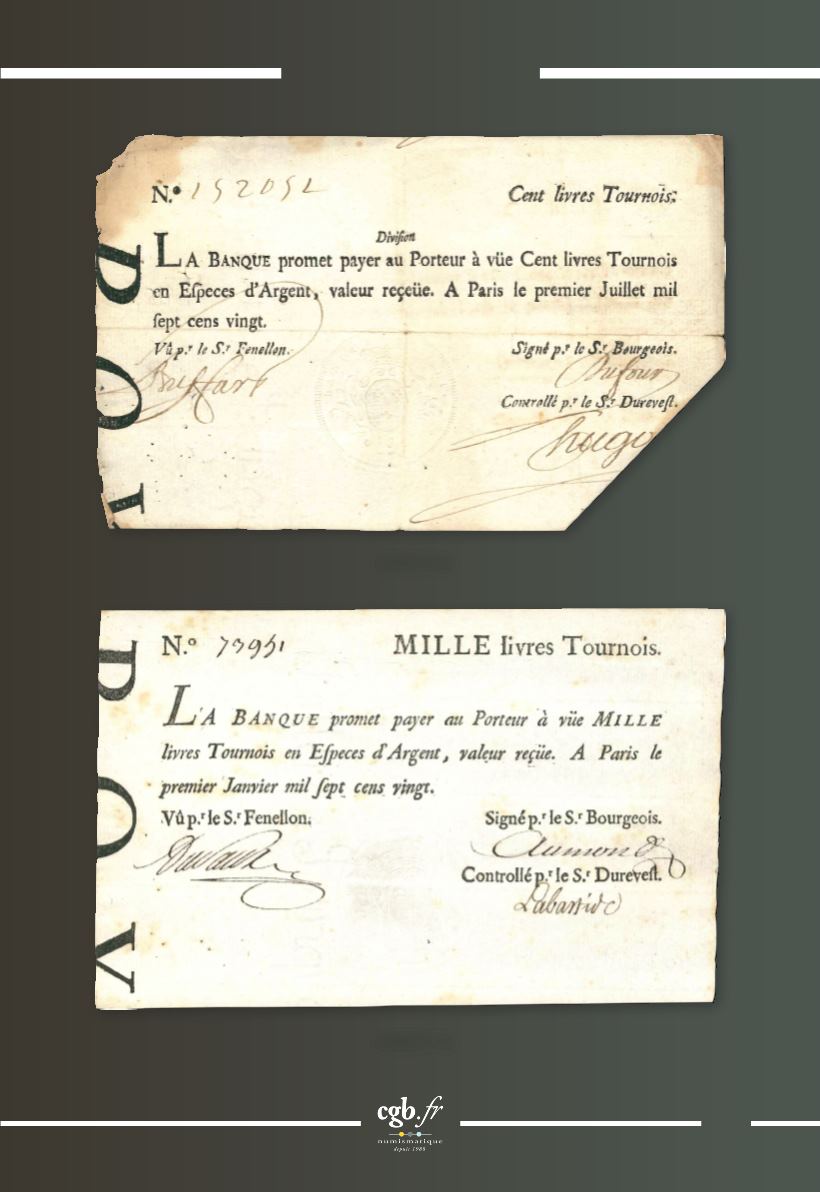 N.º 152051 Cent livres Tournois.
Division
LA BANQUE promet payer au Porteur à vüe Cent livres Tournois
en Eſpeces d'Argent, valeur reçeüe. A Paris le premier Juillet mil
ſept cens vingt.
Vû p.r le S.r Fenellon. Signé p.r le S.r Bourgeois.
Dufour
Controllé p.r le S.r Dureveſt.
hugo
ROY
N.º 77951 MILLE livres Tournois.
LA BANQUE promet payer au Porteur à vüe MILLE
livres Tournois en Eſpeces d'Argent, valeur reçüe. A Paris le
premier Janvier mil ſept cens vingt.
Vû p.r le S.r Fenellon. Signé p.r le S.r Bourgeois.
Aumond
Controllé p.r le S.r Dureveſt.
Labastide
ROY
cgb.fr
numismatique
depuis 1988